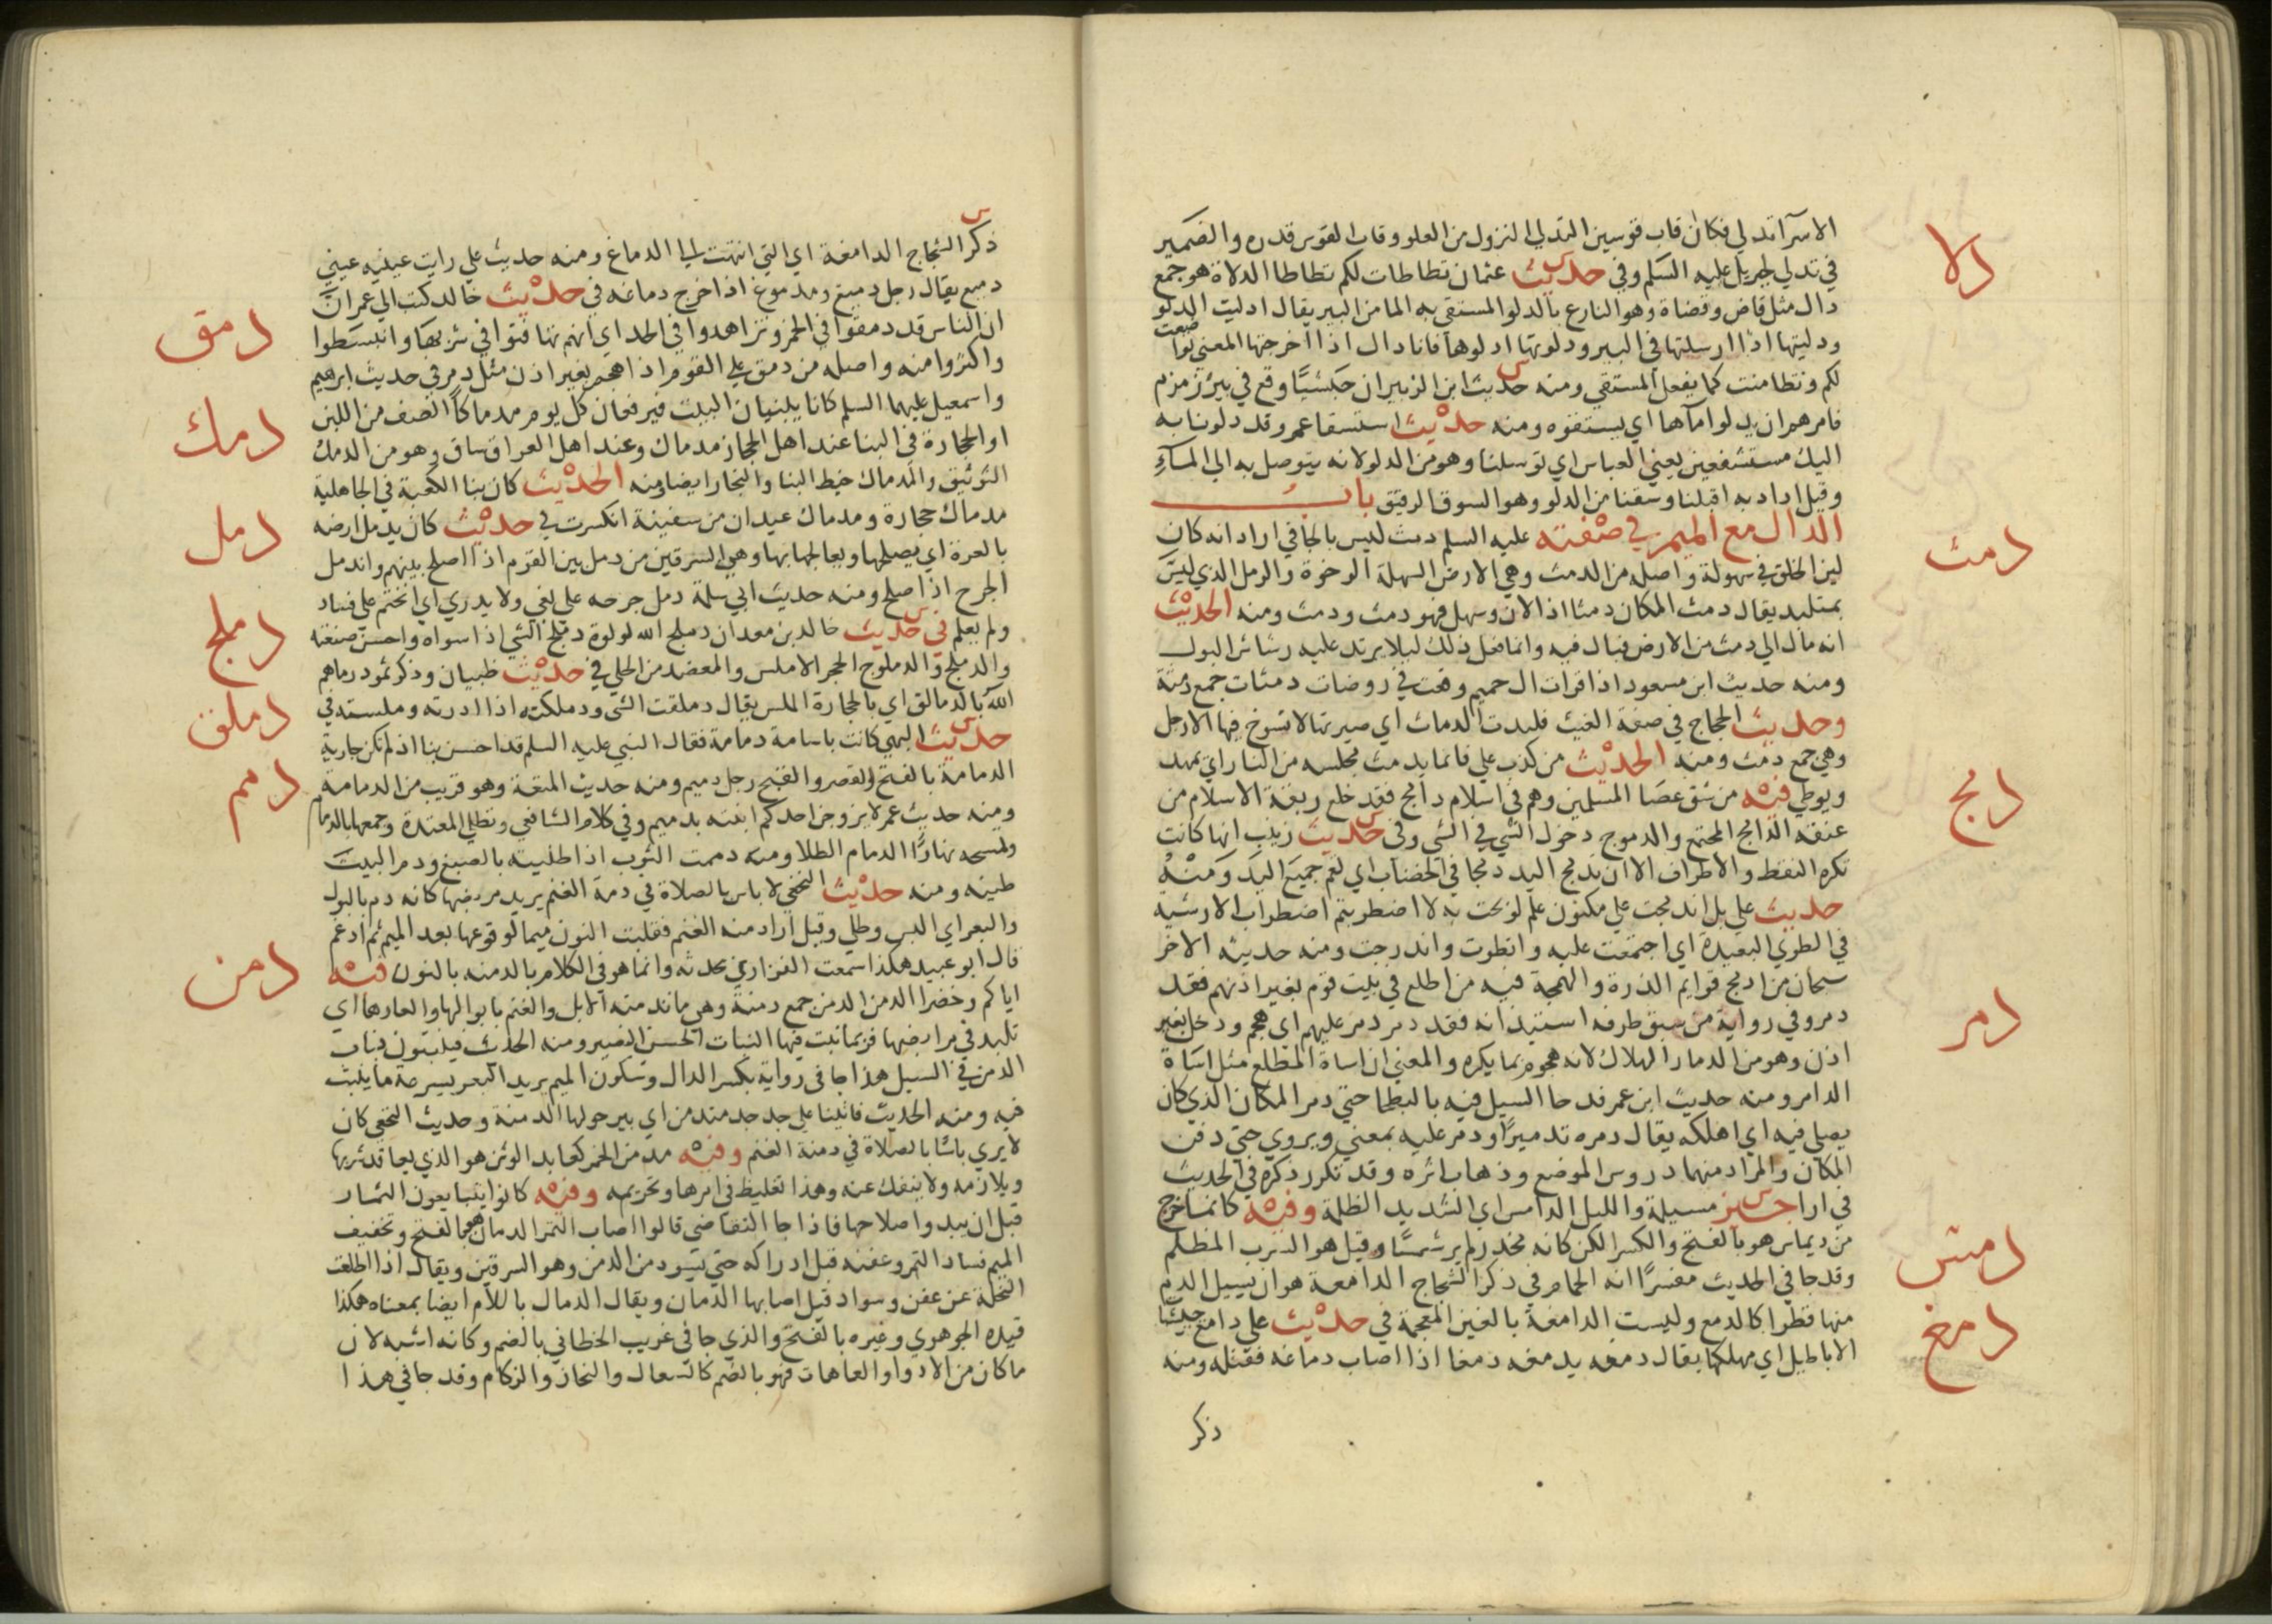 الاسرآ تدلي فكان قاب قوسين التدلي النزول من العلو وقاب القوس قدره والضمير
دلا
في تدلي لجبريل عليه السلم وفي حديث عثمان تطاطات لكم تطاطا الدلاة هو جمع
دال مثل قاض وقضاة وهو النازع بالدلو المستقي به الما من البير يقال ادليت الدلو
ودليتها اذا ارسلتها في البير ودلوتها ادلوها فانا دال اذا اخرجتها المعني تواضعت
لكم وتطامنت كما يفعل المستقي ومنه حديث ابن الزبير ان حبشيًا وقع في بئر زمزم
فامرهم ان يدلوا مآها اي يستقوه ومنه حديث استسقا عمر وقد دلونا به
اليك مستشفعين يعني العباس اي توسلنا وهو من الدلو لانه يتوصل به الي المآءِ
وقيل اراد به اقبلنا وسقنا من الدلو وهو السوق الرفيق باب
الدال مع الميم في صفته عليه السلم دمث ليس بالجافي اراد انه كان
دمث
لين الخلق في سهولة واصله من الدمث وهي الارض السهلة الرخوة والرمل الذي ليس
بمتلبد يقال دمث المكان دمثا اذا لان وسهل فهو دمث ودمث ومنه الحديث
انه مال الي دمث من الارض فبال فيه وانما فعل ذلك ليلا يرتد عليه رشاش البول
ومنه حديث ابن مسعود اذا قرات ال حميم وقعت في روضات دمثات جمع دمثة
وحديث الحجاج في صفة الغيث فلبدت الدماث اي صيرتها لا تسوخ فيها الارجل
وهي جمع دمث ومنه الحديث من كذب علي فانما يدمث مجلسه من النار اي يمهد
ويوطي فيه من شق عصا المسلمين وهم في اسلام دامج فقد خلع ربقة الاسلام من
دمج
عنقه الدامج المجتمع والدموج دخول الشي في الشي وفي حديث زينب انها كانت
تكره النقط والاطراف الا ان تدمج اليد دمجا في الخضاب اي تعم جميع اليد ومنه
حديث علي بل اندمجت علي مكنون علم لو بحت به لاضطربتم اضطراب الارشية
في الطوي البعيدة اي اجتمعت عليه وانطوت واندرجت ومنه حديثه الاخر
سبحان من ادمج قوايم الذرة والهمجة فيه من اطلع في بيت قوم بغير اذنهم فقد
دمر
دمر وفي رواية من سبق طرفه استيذانه فقد دمر دمر عليهم اي هجم ودخل بغير
اذن وهو من الدمار الهلاك لانه هجوم بما يكره والمعني ان اساة المطلع مثل اساة
الدامر ومنه حديث ابن عمر قد حا السيل فيه بالبطحا حتي دمر المكان الذي كان
يصلي فيه اي اهلكه يقال دمره تدميرًا ودمر عليه بمعني ويروي حتي دفن
المكان والمراد منهما دروس الموضع وذهاب اثره وقد تكرر ذكره في الحديث
في اراجيز مسيلمة والليل الدامس اي الشديد الظلمة وفيه كانما خرج
دمس
من ديماس هو بالفتح والكسر الكن كانه مخدر لم ير شمسًا وقيل هو السرب المظلم
وقد جا في الحديث مفسرًا انه الحمام في ذكر الشجاج الدامعة هو ان يسيل الدم
منها قطرا كالدمع وليست الدامغة بالغين المعجمة في حديث علي دامغ جيشات
دمغ
الاباطيل اي مهلكها يقال دمغه يدمغه دمغا اذا اصاب دماغه فقتله ومنه
ذكر
ذكر الشجاج الدامغة اي التي انتهت الي الدماغ ومنه حديث علي رايت عينيه عيني
دميغ يقال رجل دميغ ومدموغ اذا خرج دماغه في حديث خالد كتب الي عمر ان
دمق
ان الناس قد دمقوا في الخمر وتزاهدوا في الحد اي انهم تهافتوا في شربها وانبسطوا
واكثروا منه واصله من دمق علي القوم اذا هجم بغير اذن مثل دمر في حديث ابرهيم
دمك
واسمعيل عليهما السلم كانا يبنيان البيت فيرفعان كل يوم مدماكًا الصف من اللبن
او الحجارة في البنا عند اهل الحجاز مدماك وعند اهل العراق ساق وهو من الدمك
التوثيق والمدماك خيط البنا والنجار ايضا ومنه الحديث كان بنا الكعبة في الجاهلية
مدماك حجارة ومدماك عيدان من سفينة انكسرت في حديث كان يدمل ارضه
دمل
بالعرة اي يصلحها ويعالجها بها وهي السرقين من دمل بين القوم اذا اصلح بينهم واندمل
الجرح اذا صلح ومنه حديث ابي سلمة دمل جرحه علي بغي ولا يدري اي انختم علي فساد
ولم يعلم في حديث خالد بن معدان دملج الله لولوة دملج الشي اذا سواه واحسن صنعته
دملج
والدملج والدملوج الحجر الاملس والمعضد من الحلي في حديث ظبيان وذكر ثمود رماهم
دملق
الله بالدمالق اي بالحجارة الملس يقال دملقت الشي ودملكته اذا ادرته وملسته في
حديث البهي كانت باسامة دمامة فقال النبي عليه السلم قد احسن بنا اذ لم تكن جارية
دمم
الدمامة بالفتح القصر والقبح رجل دميم ومنه حديث المتعة وهو قريب من الدمامة
ومنه حديث عمر لا يزوجن احدكم ابنته بدميم وفي كلام الشافعي وتطلي المعتدة وجهها بالدمام
وتمسحه نهارًا الدمام الطلا ومنه دممت الثوب اذا طليته بالصبغ ودم البيت
طينه ومنه حديث النخعي لا باس بالصلاة في دمة الغنم يريد مربضها كانه دم بالبول
والبعر اي البس وطلي وقيل اراد منه الغنم فقلبت النون ميما لوقوعها بعد الميم ثم ادغم
قال ابو عبيد هكذا سمعت الفزاري يحدثه وانما هو في الكلام بالدمنه بالنون فيه
دمن
اياكم وخضرا الدمن الدمن جمع دمنة وهي ما تدمنه الابل والغنم بابوالها وابعارها اي
تلبد في مرابضها فربما نبت فيها النبات الحسن النضير ومنه الحديث فينبتون نبات
الدمن في السيل هذا جا في رواية بكسر الدال وسكون الميم يريد البعر يسرعة ما ينبت
فيه ومنه الحديث فاتينا علي جدجد متدمن اي بير حولها الدمنة وحديث النخعي كان
لا يري باسًا بالصلاة في دمنة الغنم وفيه مدمن الخمر كعابد الوثن هو الذي يعاقد شربها
ويلازمه ولا ينفك عنه وهذا تغليظ في امرها وتحريمه وفيه كانوا يتبايعون الثمار
قبل ان يبدو اصلاحها فاذا جا التقاضي قالوا اصاب الثمر الدمان هو بالفتح وتخفيف
الميم فساد الثمر وعفنه قبل ادراكه حتي يسود من الدمن وهو السرقين ويقال اذا اطلعت
النخلة عن عفن وسواد قيل اصابها الدمان ويقال الدمال باللام ايضا بمعناه هكذا
قيده الجوهري وغيره بالفتح والذي جا في غريب الخطابي بالضم وكانه اشبه لان
ما كان من الادوا والعاهات فهو بالضم كالسعال والنحاز والزكام وقد جا في هذا